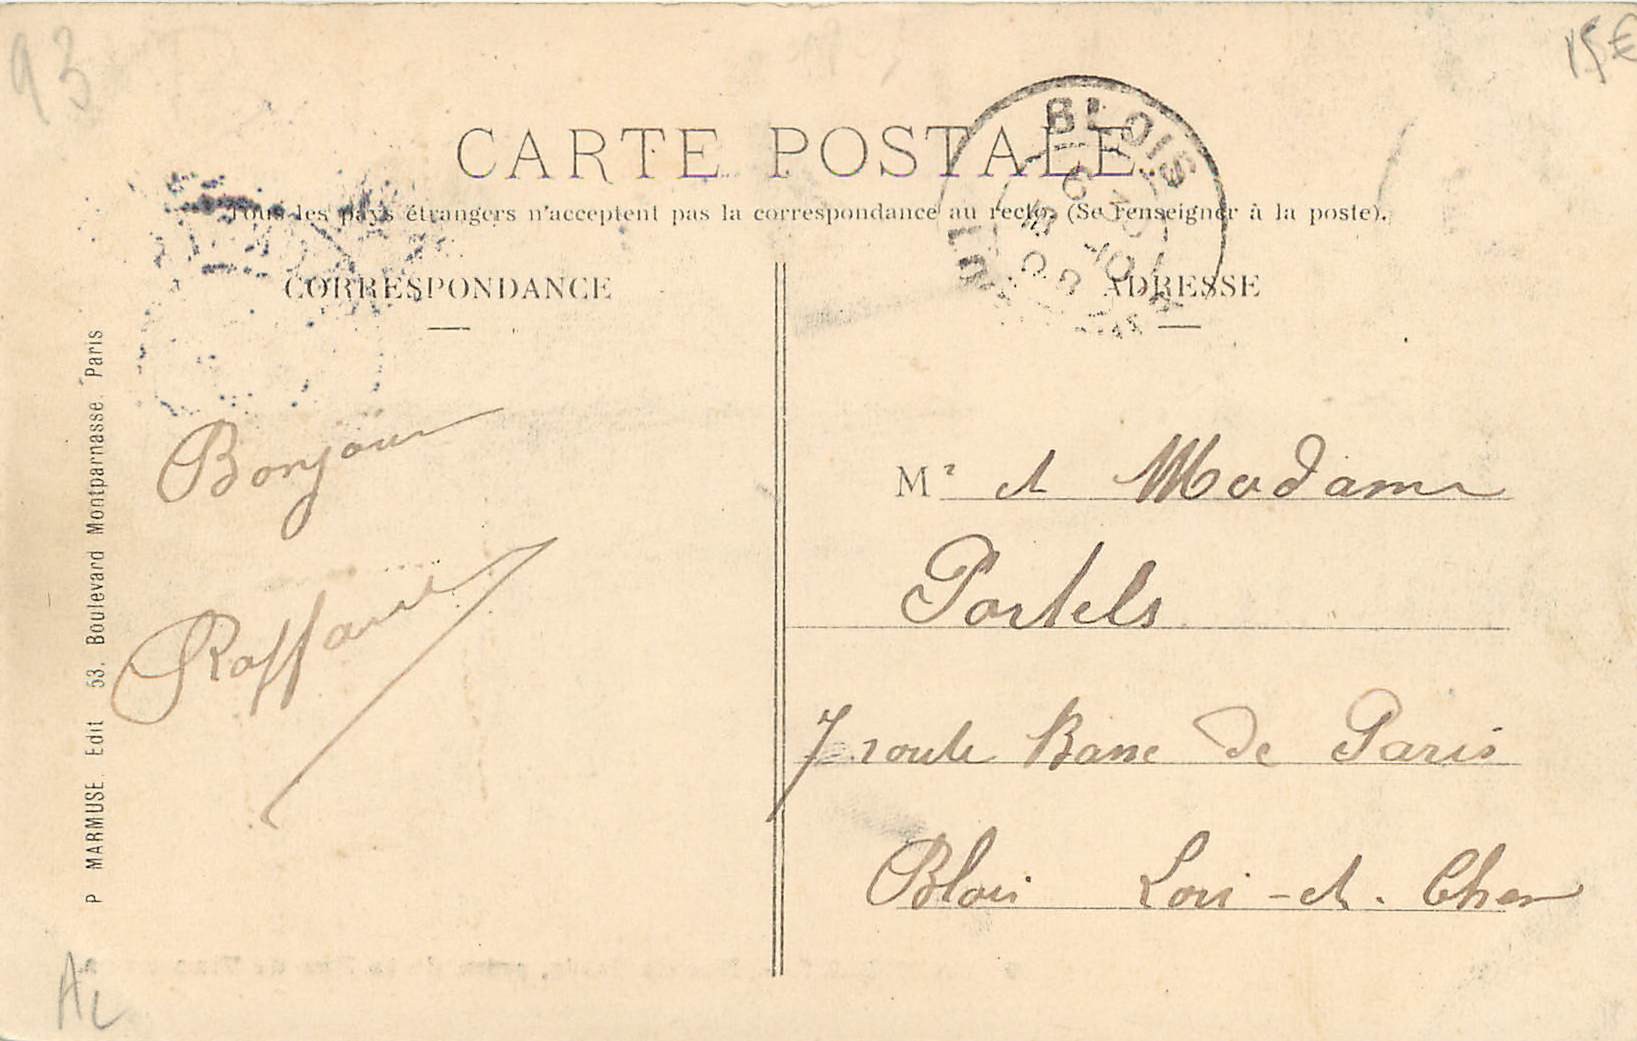 93
15€
CARTE POSTALE
BLOIS
Tous les pays étrangers n'acceptent pas la correspondance au recto. (Se renseigner à la poste).
CORRESPONDANCE
ADRESSE
Bonjour
P. MARMUSE. Edit. 53, Boulevard Montparnasse, Paris
Mr et Madame
Portels
7 route Basse de Paris
Blois Loir-et-Cher
AL